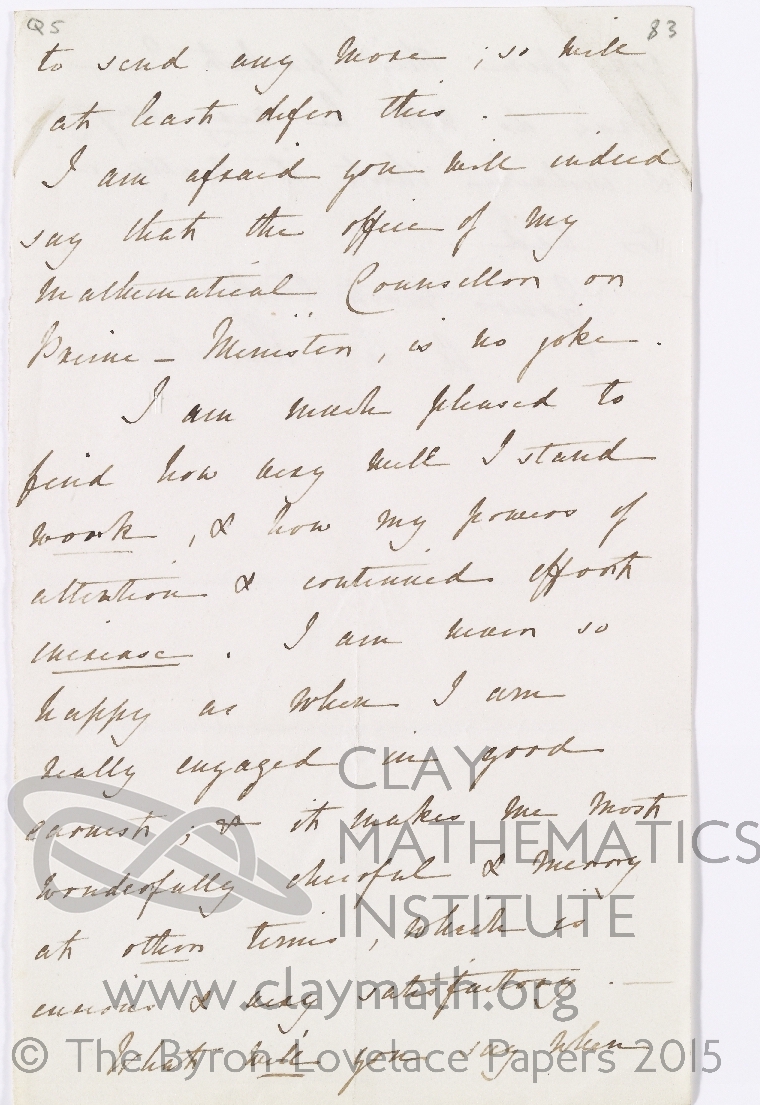 Q5
83
to send any more ; so will
at least defer this . —
I am afraid you will indeed
say that the office of my
Mathematical Counsellor or
Prime - Minister , is no joke .
I am much pleased to
find how very well I stand
work , & how my powers of
attention & continued effort
increase . I am never so
happy as when I am
really engaged in good
earnest ; & it makes me most
wonderfully cheerful & merry
at other times , which is
curious & very satisfactory . —
What will you say when
CLAY
MATHEMATICS
INSTITUTE
www.claymath.org
© The Byron-Lovelace Papers 2015